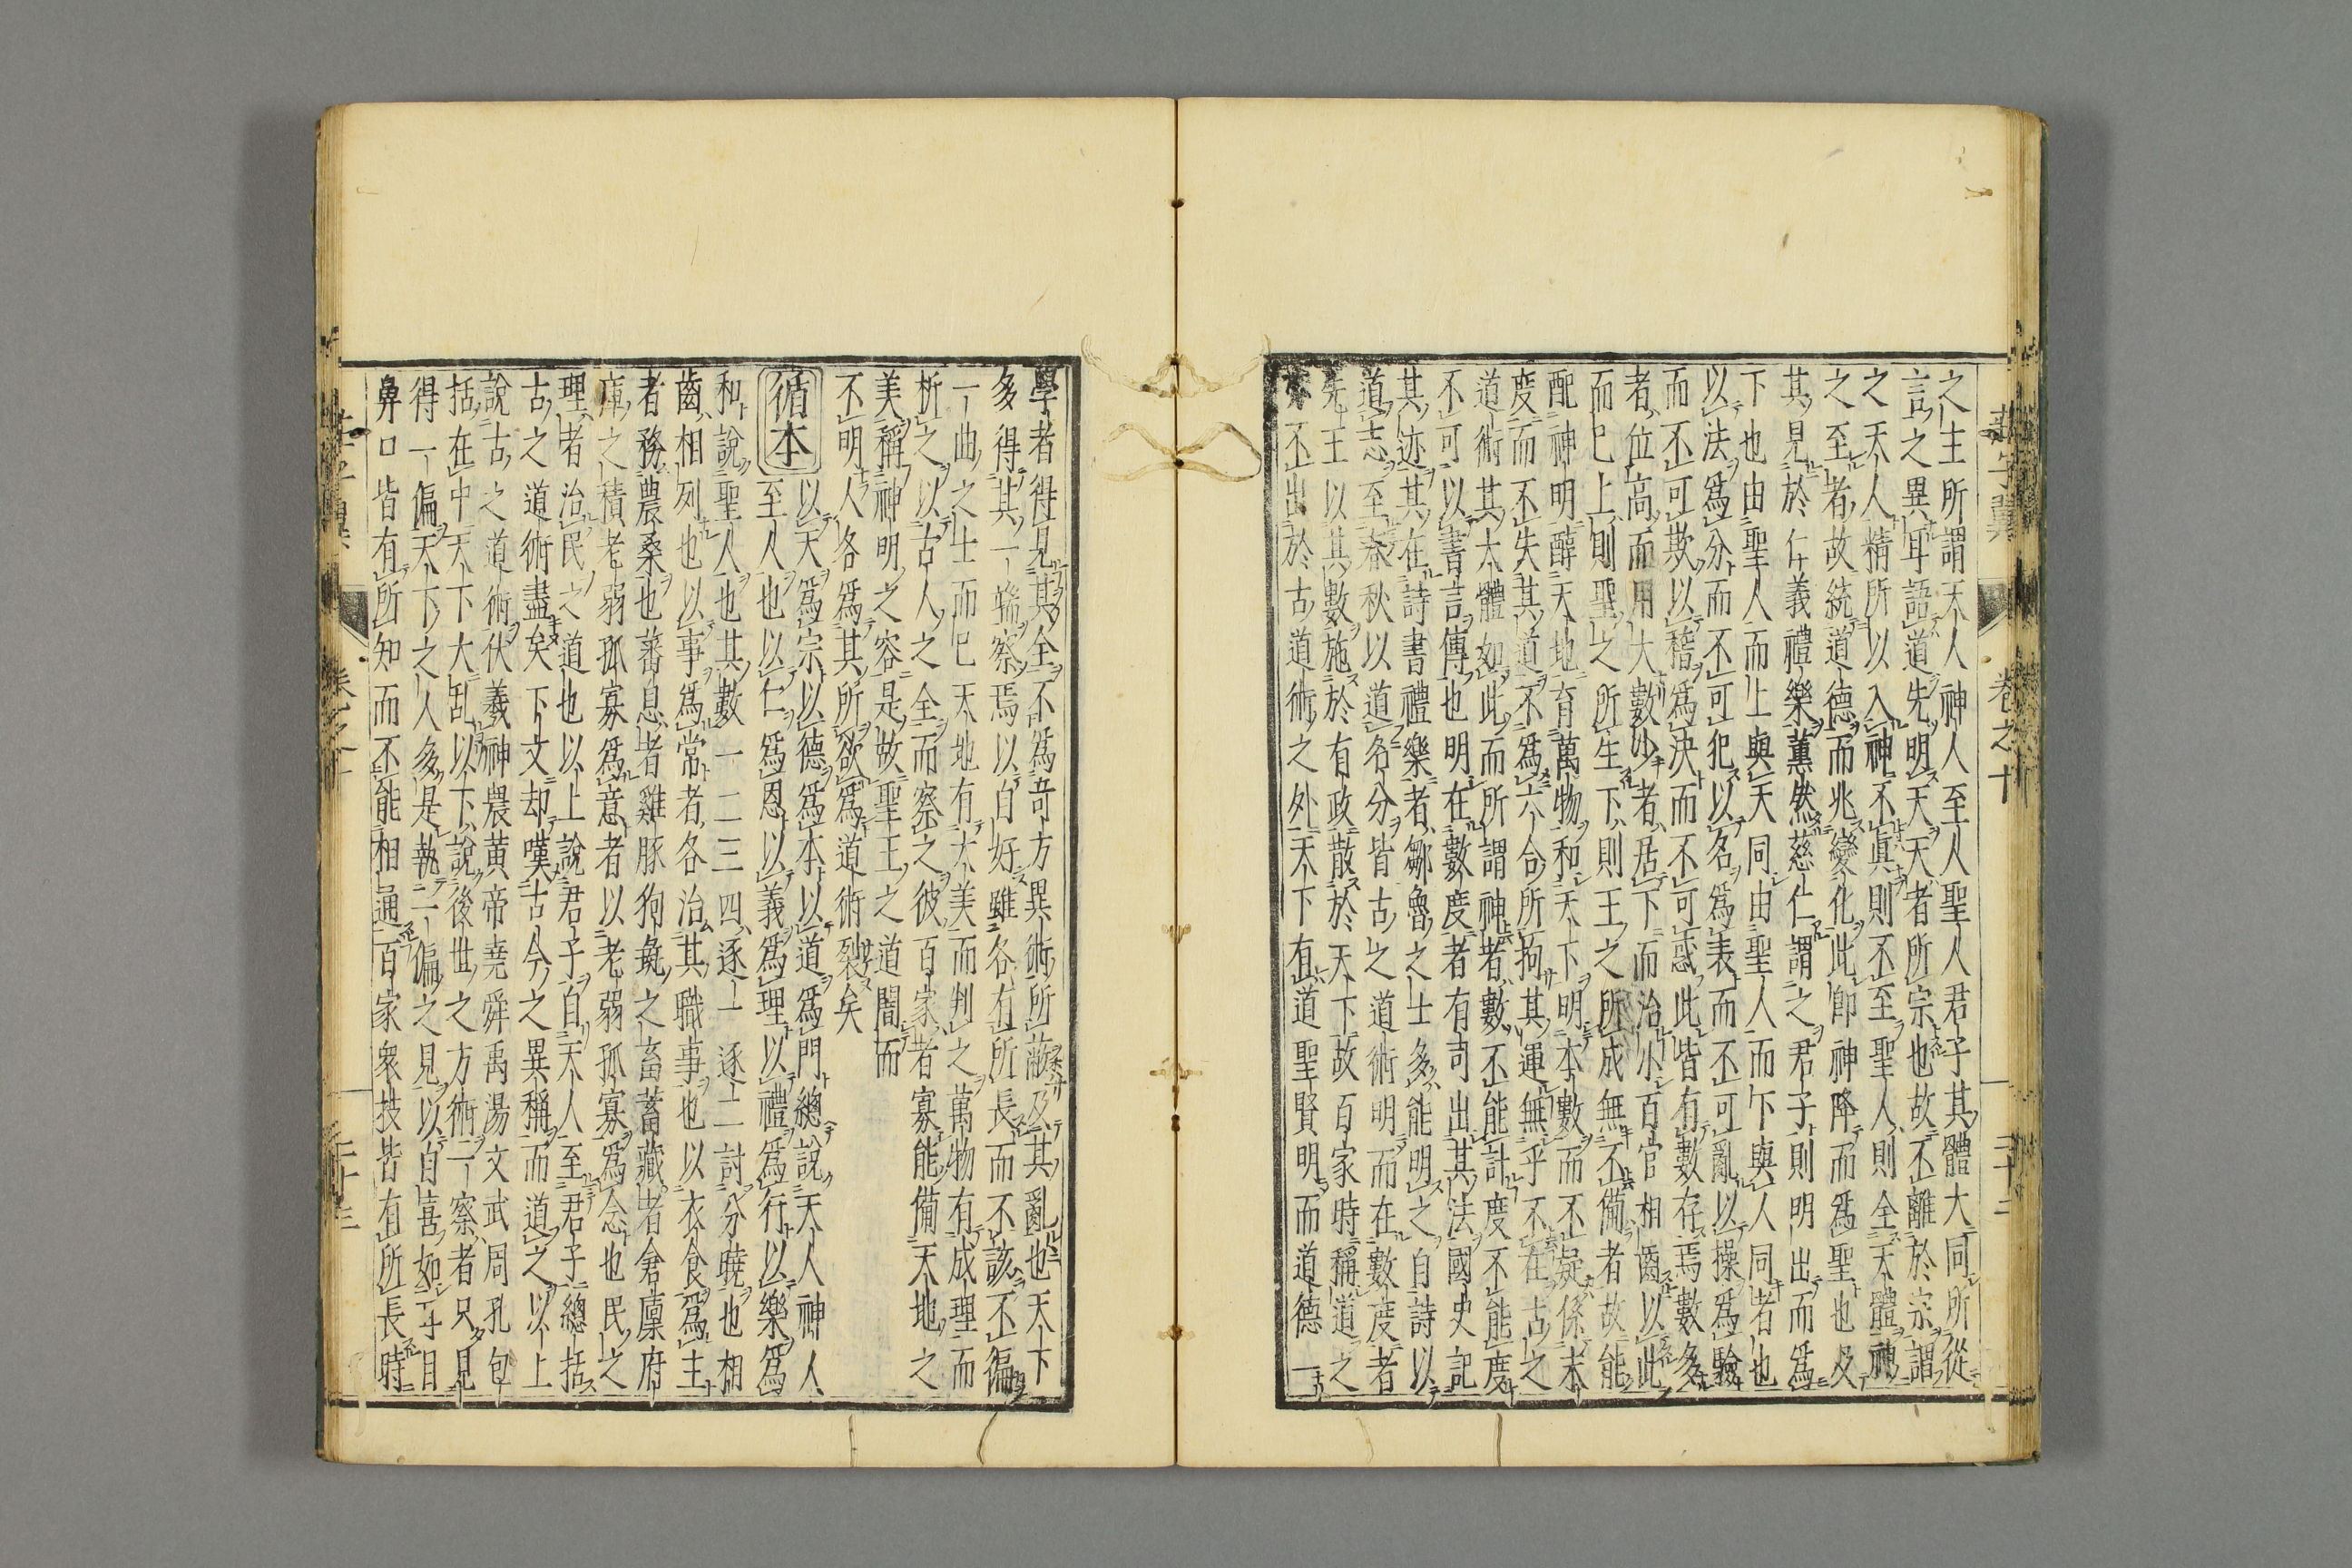 莊子翼 卷之十 三十三
之主所謂天人神人至人聖人君子其體大同所從
言之異耳語道先明天天者所宗也故不離於宗謂
之天人精所以入神不眞則不至聖人則全天體神
之至者故統道德而兆變化此即神降而爲聖也及
其見於仁義禮樂薰然慈仁謂之君子則明出而爲
下也由聖人而上與天同由聖人而下與人同者也
以法爲分而不可犯以名爲表而不可亂以操爲驗
而不可欺以稽爲決而不可惑此皆有數存焉數多
者位高而用大數少者居下而治小百官相齒以此
而已上則聖之所生下則王之所成無不備者故能
配神明醇天地育萬物和天下明本數而不疑係末
度而不失其道不爲六合所拘其運無乎不在古之
道術其大體如此而所謂神者數不能計度不能度
不可以書言傳也明在數度者有司出其法國史記
其迹其在詩書禮樂者鄒魯之士多能明之自詩以
道志至春秋以道名分皆古之道術明而在數度者
先王以其數施於有政散於天下故百家時稱道之
不出於古道術之外天下有道聖賢明而道德一
學者得見其全不爲奇方異術所蔽及其亂也天下
多得其一端察焉以自好雖各有所長而不該不徧
一曲之士而已天地有大美而判之萬物有成理而
析之以古人之全而察之彼百家者寡能備天地之
美稱神明之容是故聖王之道闇而
不明人各爲其所欲爲道術裂矣
循本 以天爲宗以德爲本以道爲門總說天人神人
至人也以仁爲恩以義爲理以禮爲行以樂爲
和說聖人也其數一二三四逐一逐二討分曉也相
齒相列也以事爲常者各治其職事也以衣食爲主
者務農桑也蕃息者雞豚狗彘之畜蓄藏者倉廩府
庫之積老弱孤寡爲意者以老弱孤寡爲念也民之
理者治民之道也以上說君子自天人至君子總括
古之道術盡矣下文却嘆古今之異稱而道之以上
說古之道術伏羲神農黃帝堯舜禹湯文武周孔包
括在中天下大乱以下說後世之方術一察者只見
得一偏天下之人多是執一偏之見以自喜如耳目
鼻口皆有所知而不能相通百家衆技皆有所長時